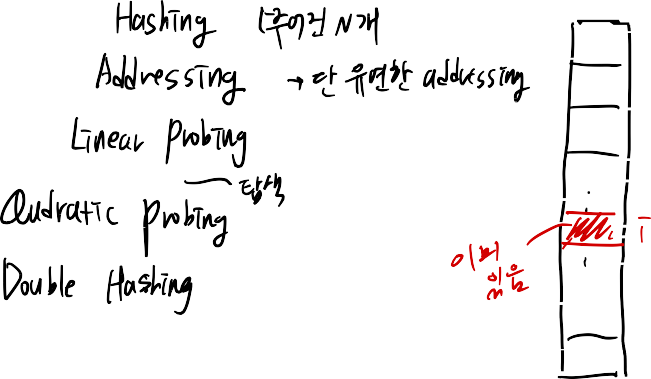 Hashing 주어진 N개
Addressing → 단 유연한 addressing
Linear Probing
탐색
Qudratic Probing
Double Hashing
이미
있음
i